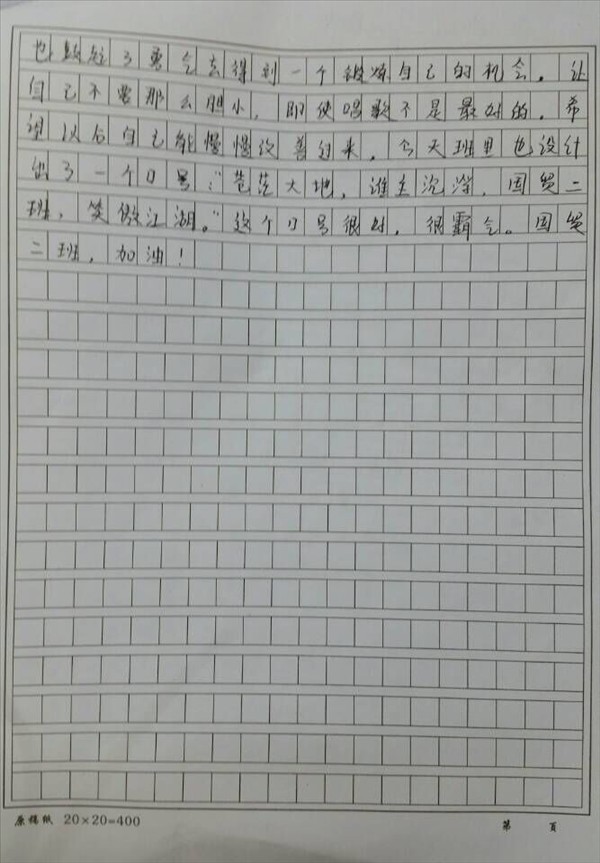 也鼓起了勇气去得到一个锻炼自己的机会。让
自己不要那么胆小，即使唱歌不是最好的。希
望以后自己能慢慢改善过来。今天班里也设计
出了一个口号：“苍茫大地，谁主沉浮，国贸二
班，笑傲江湖。”这个口号很好，很霸气。国贸
二班，加油！
原稿纸 20×20=400
第 页